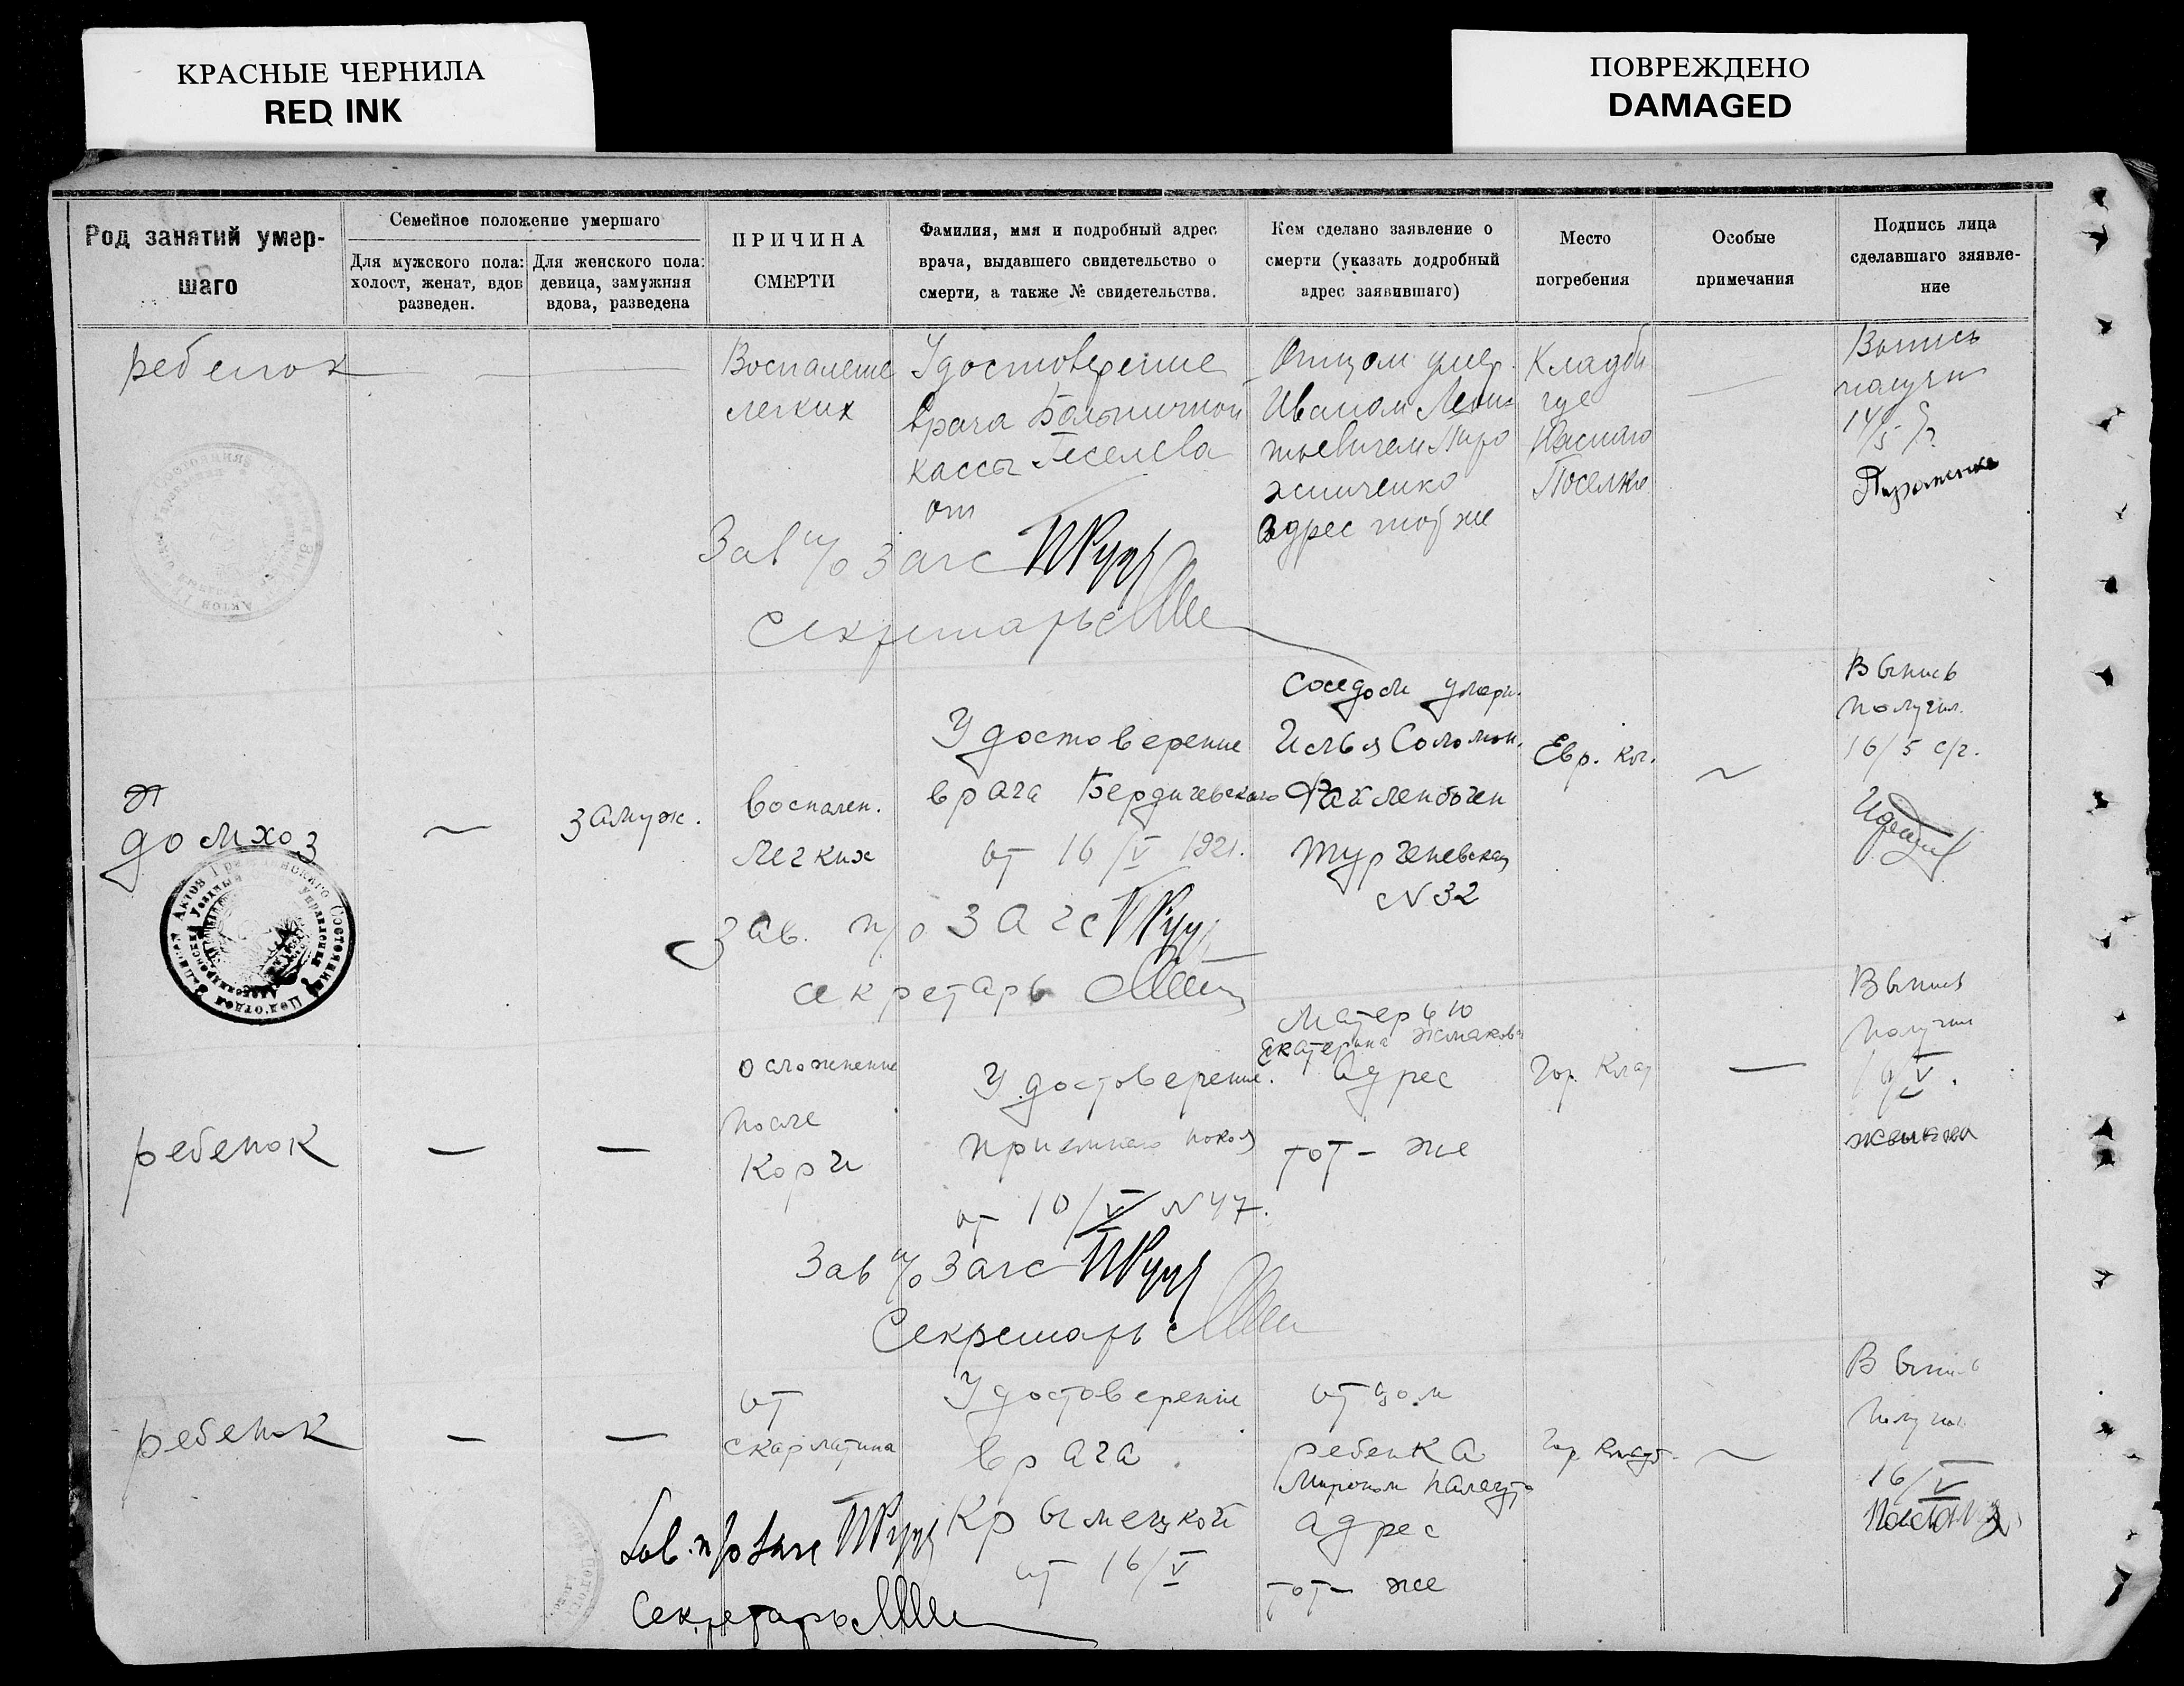 КРАСНЫЕ ЧЕРНИЛА
RED INK
ПОВРЕЖДЕНО
DAMAGED
Род занятий умер-
шаго
Семейное положение умершаго
Для мужского пола:
холост, женат, вдов
разведен.
Для женского пола:
девица, замужняя
вдова, разведена
ПРИЧИНА
СМЕРТИ
Фамилия, имя и подробный адрес
врача, выдавшего свидетельство о
смерти, а также № свидетельства.
Кем сделано заявление о
смерти (указать додробный
адрес заявившаго)
Место
погребения
Особые
примечания
Подпись лица
сделавшаго зяявле-
ние
ребенок
Воспаление
легких
Удостоверение
врача Больничной
кассы
от
Отцом умер.
Иваном
адрес тот же
Кладби
ще
Поселка
Выпись
14/5
Зав п/о Загс
Секретарь
домхоз
—
замуж.
воспален.
легких
Удостоверение
врача Бердичевского
от 16/V 1921.
Соседом умерш.
Илья Соломон.
Файленбоген
Тургеневская
N 32
Евр. кл.
~
Выпись
получил.
16/5 с/г.
Зав. п/о Загс
секретарь
ребенок
—
—
осложнение
после
Кори
Удостоверение.
приемнаго покоя
от 10/V N 47.
Матерью
Екатерина
Адрес
тот-же
Гор. Клад
—
Выпись
Зав п/о Загс
Секретарь
ребенок
—
—
от
скарлатина
Удостоверение
врача
от 16/V
отцом
ребенка
Мироном
адрес
тот-же
Гор Кладб.
~
Выпись
16/V
Зав. п/о Загс
Секретарь